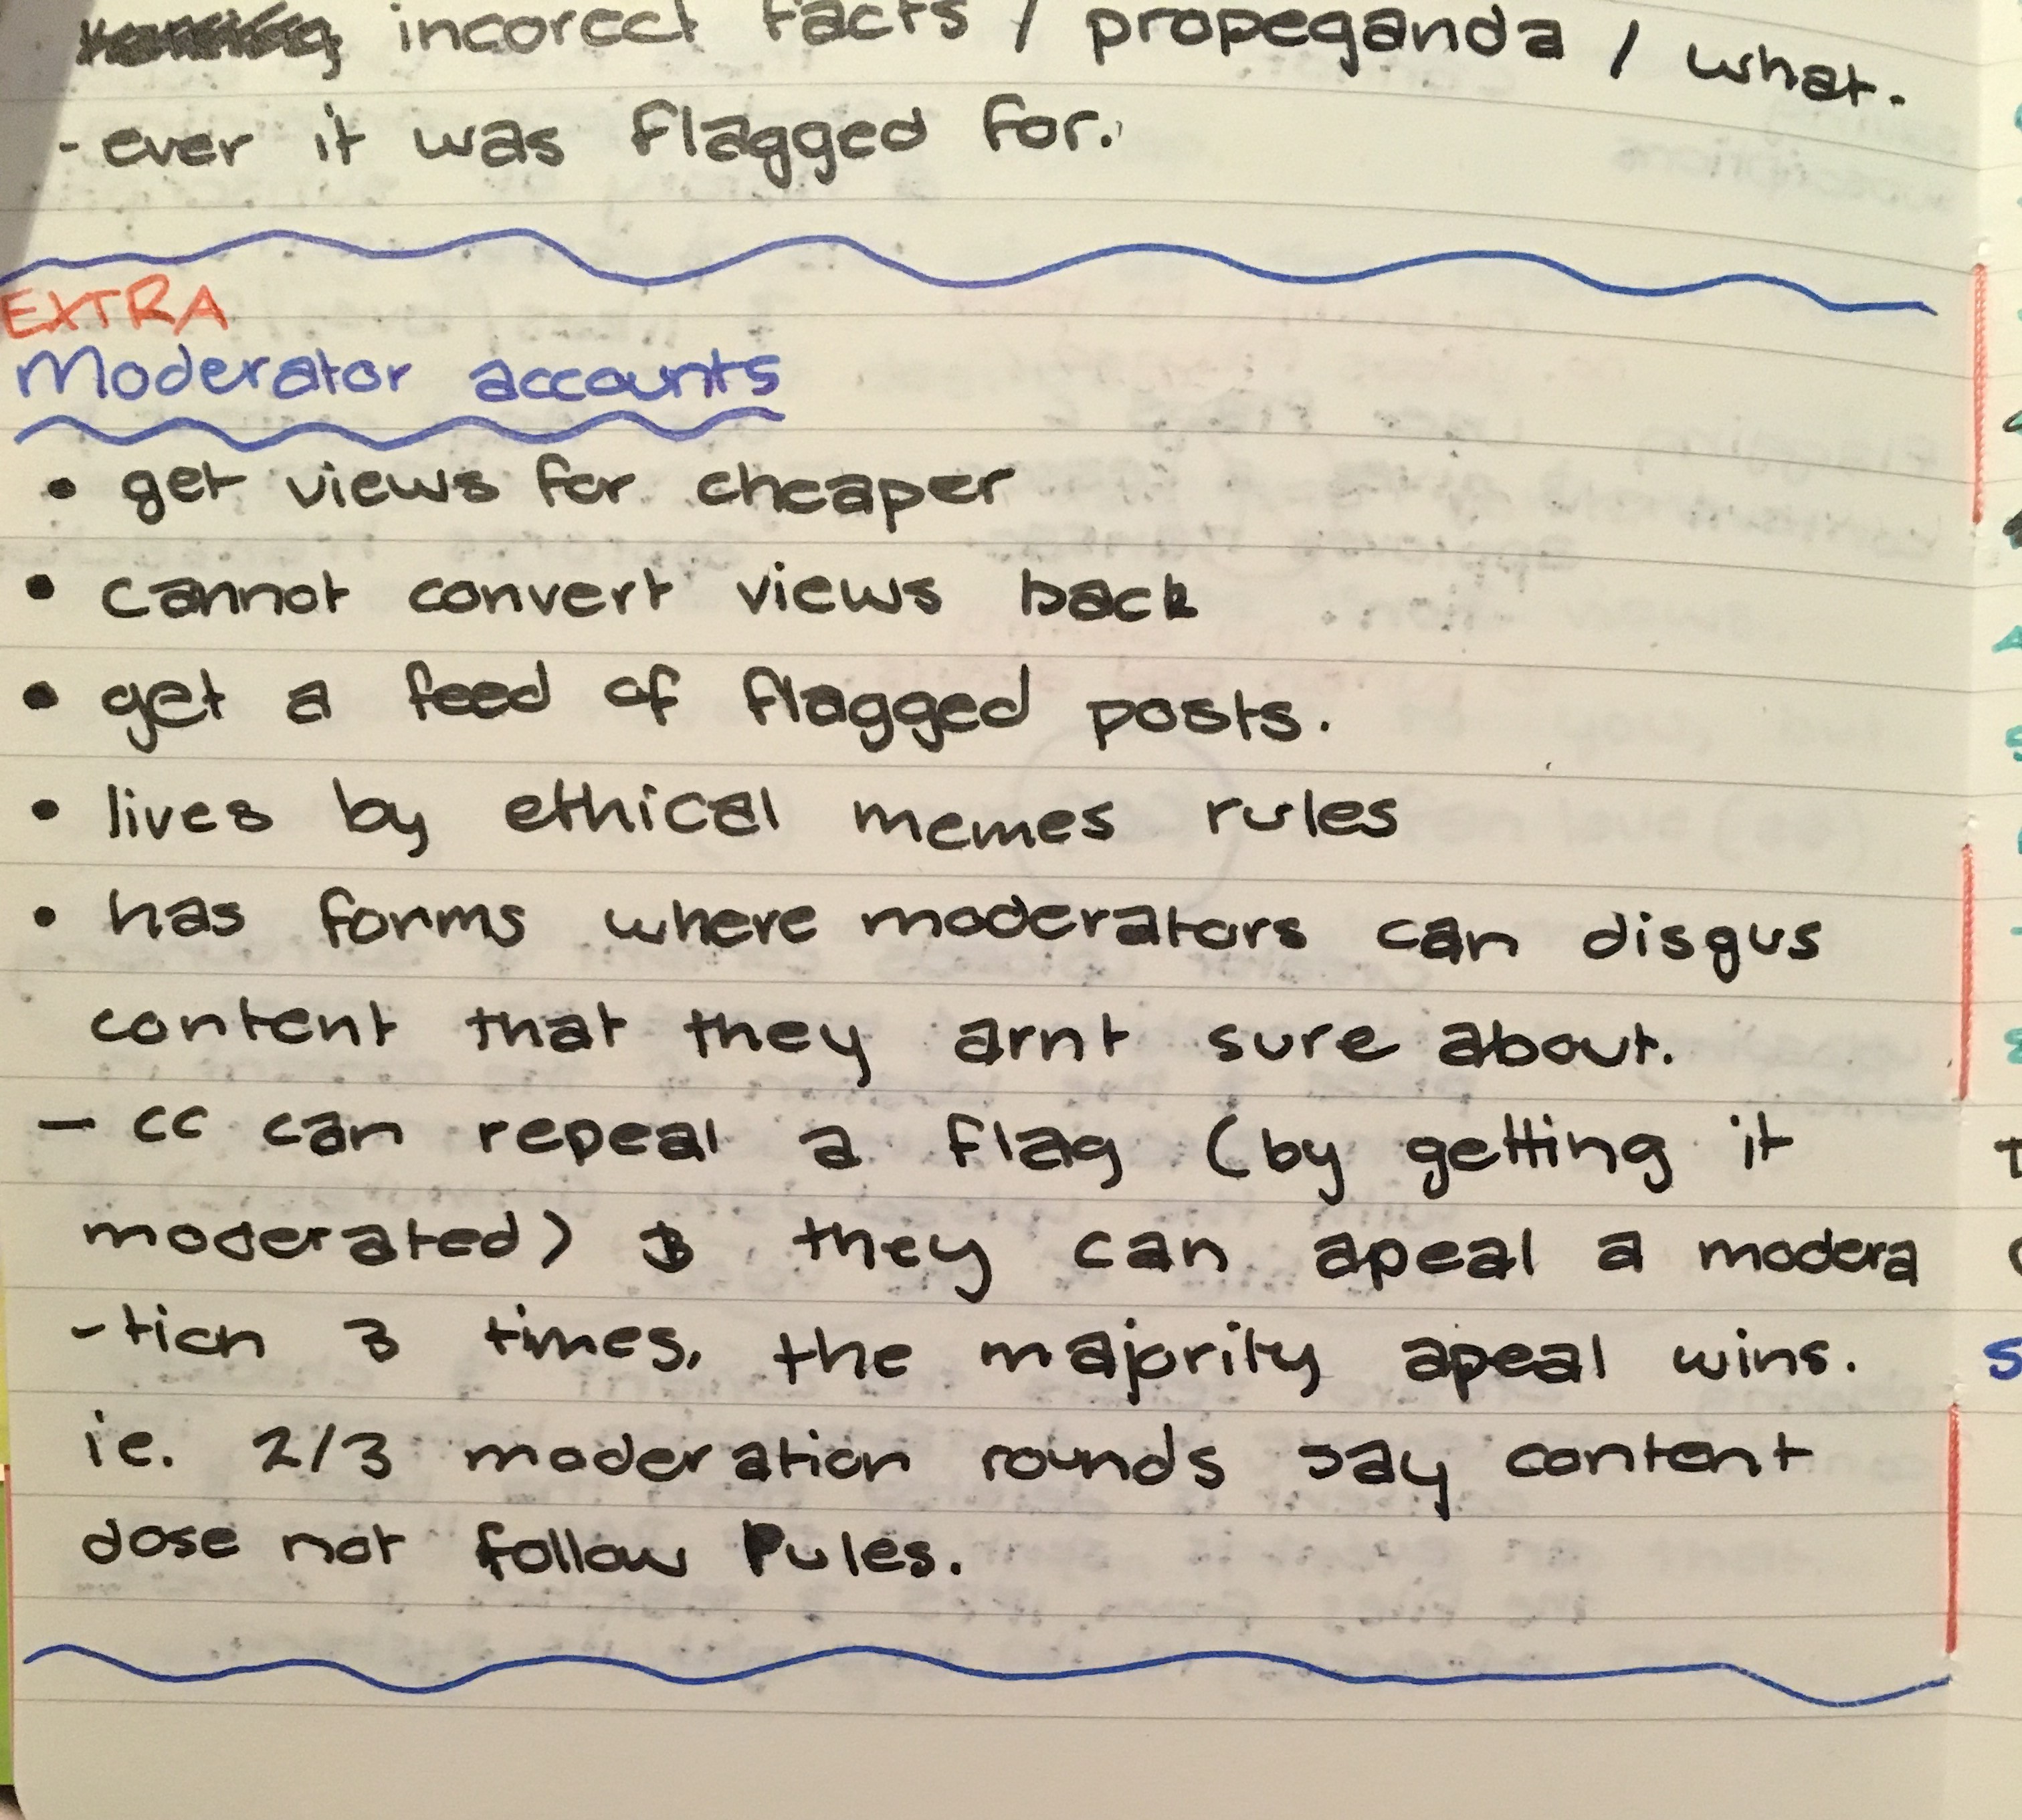 incorect facts / propeganda / what.
-ever it was flagged for.
EXTRA
Moderator accounts
• get views for cheaper
• cannot convert views back
• get a feed of flagged posts.
• lives by ethical memes rules
• has forms where moderators can disgus
content that they arnt sure about.
- cc can repeal a flag (by getting it
moderated) & they can apeal a modera
-tion 3 times, the majority apeal wins.
ie. 2/3 moderation rounds say content
dose not follow Rules.